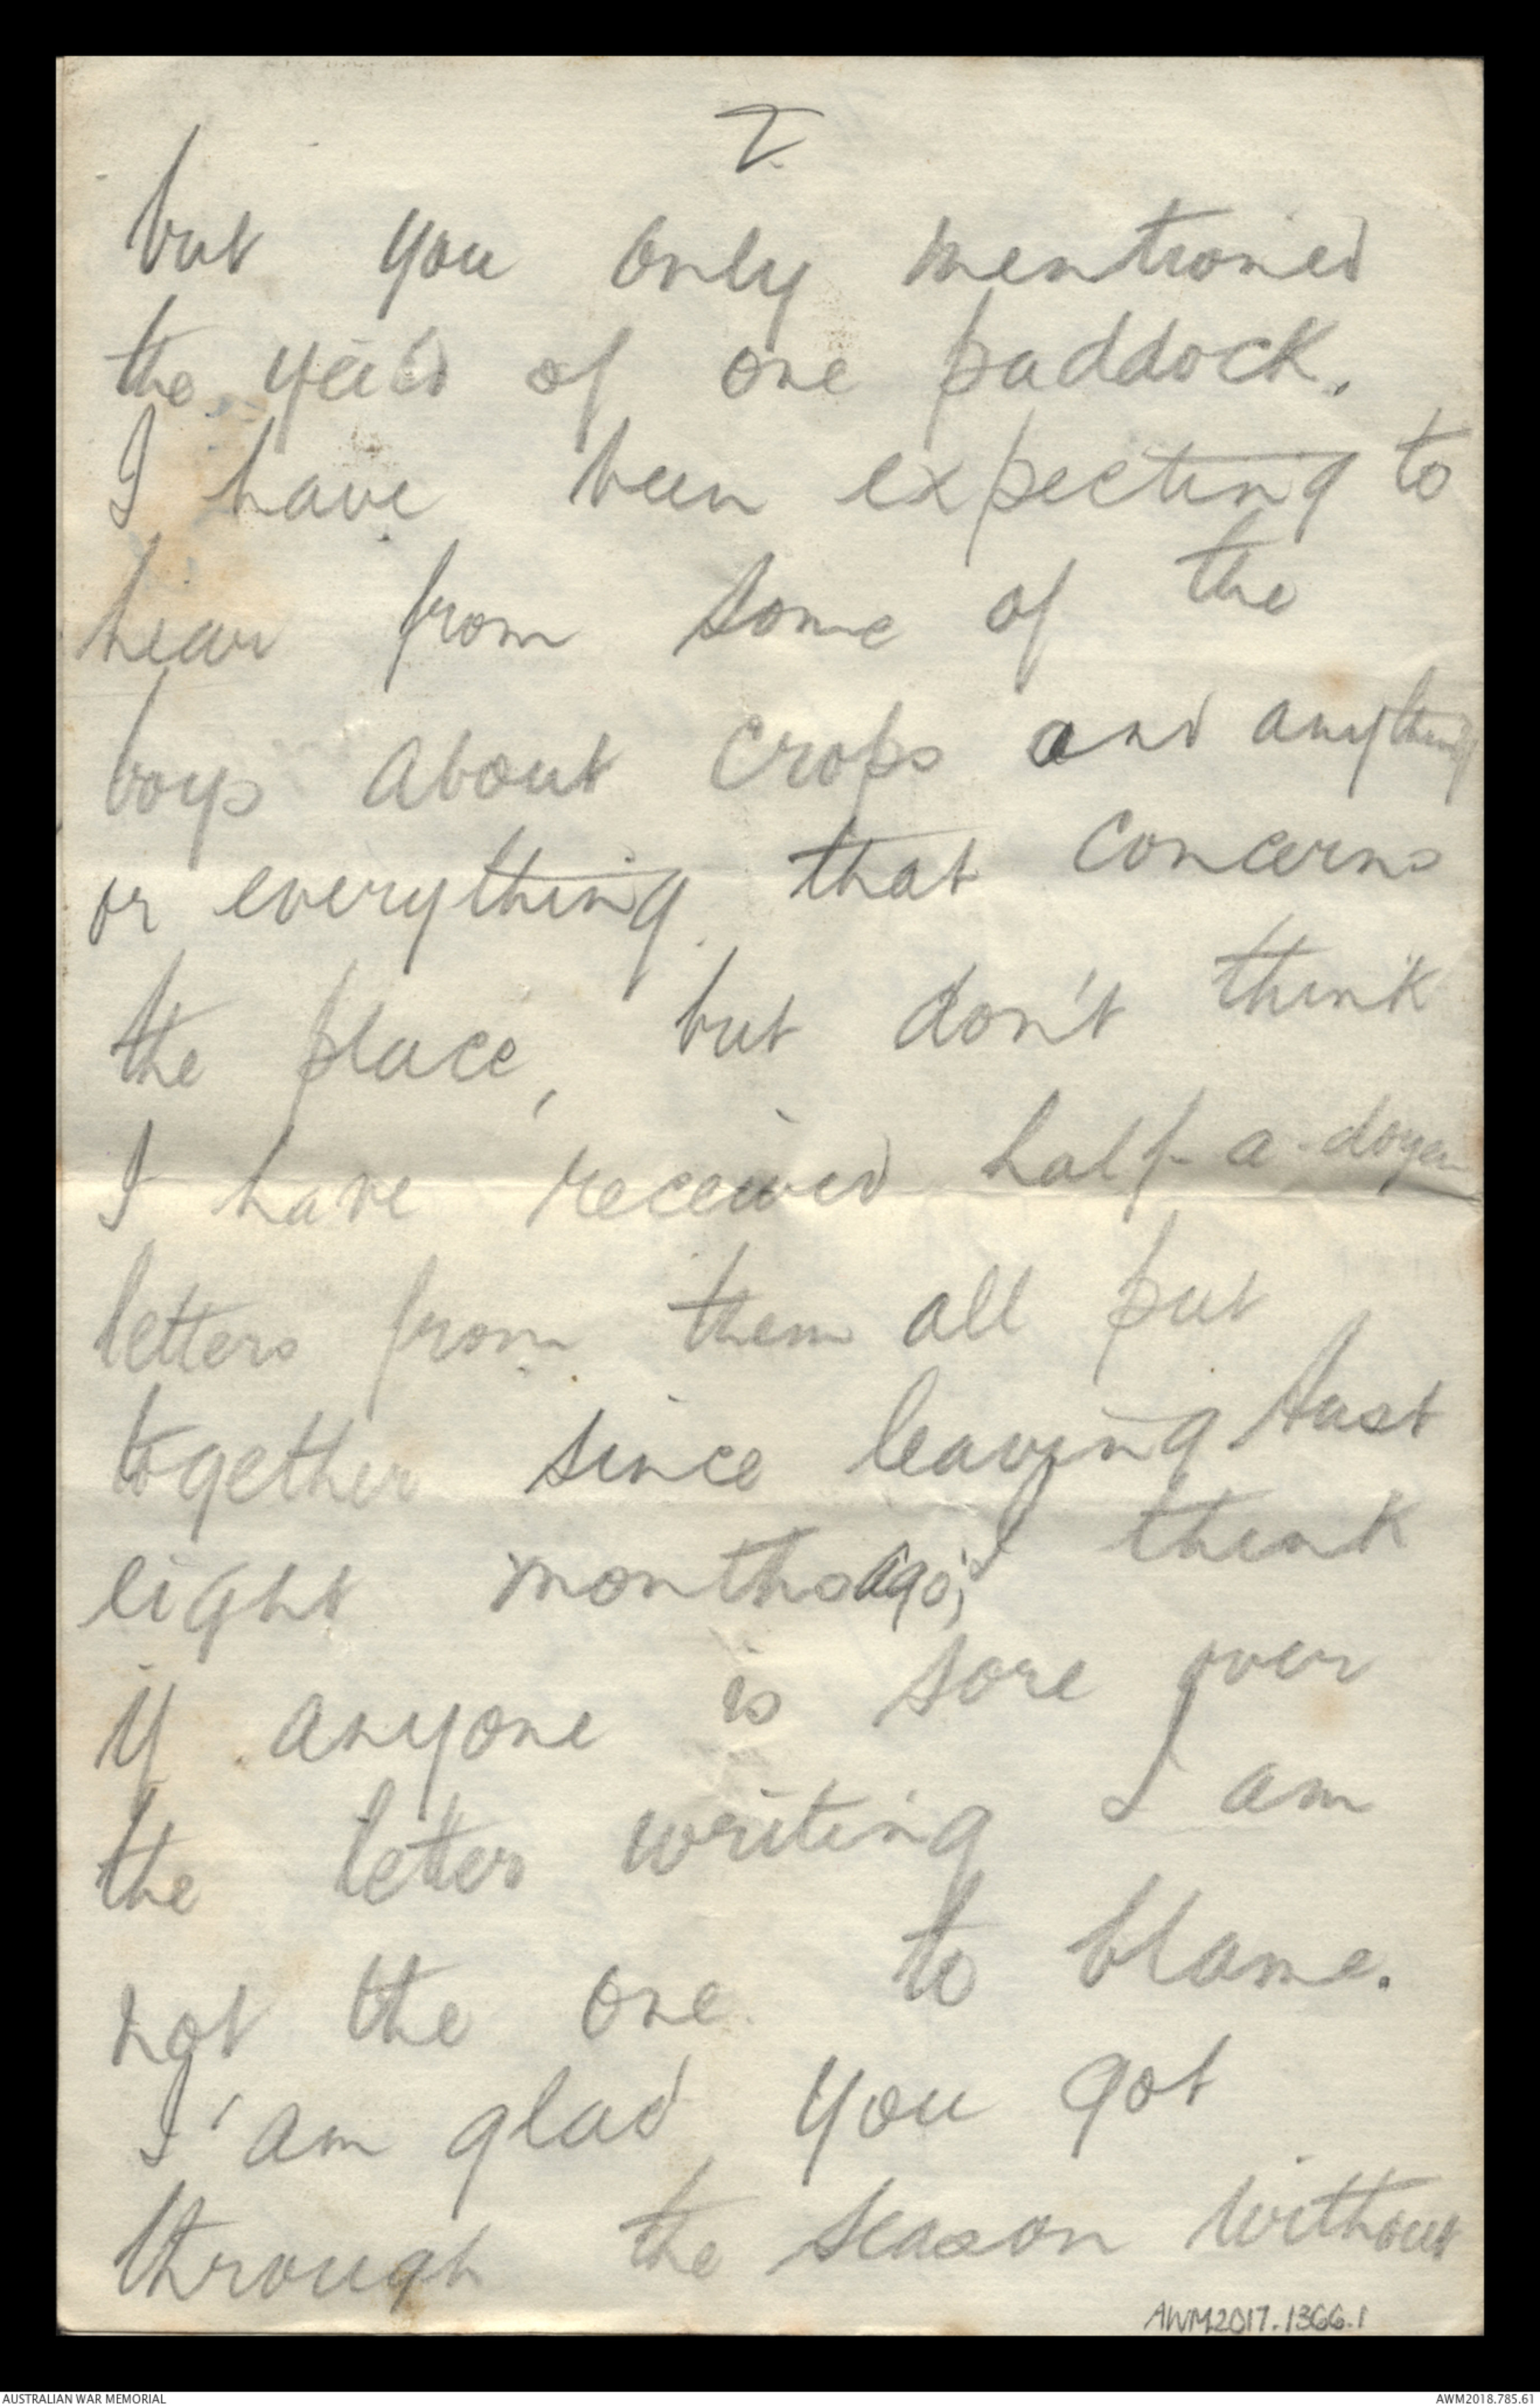 2
but you only mentioned
the yeild of one paddock.
I have been expecting to
hear from some of the
boys about crops and anything
or everything that concerns
the place, but don't think
I have received half-a-dozen
letters from them all put
together since leaving Aust
eight months ago; I think
if anyone is sore over
the letter writing I am
not the one to blame.
I am glad you got
through the season without
AWM2017.1366.1
AUSTRALIAN WAR MEMORIAL
AWM2018.785.61